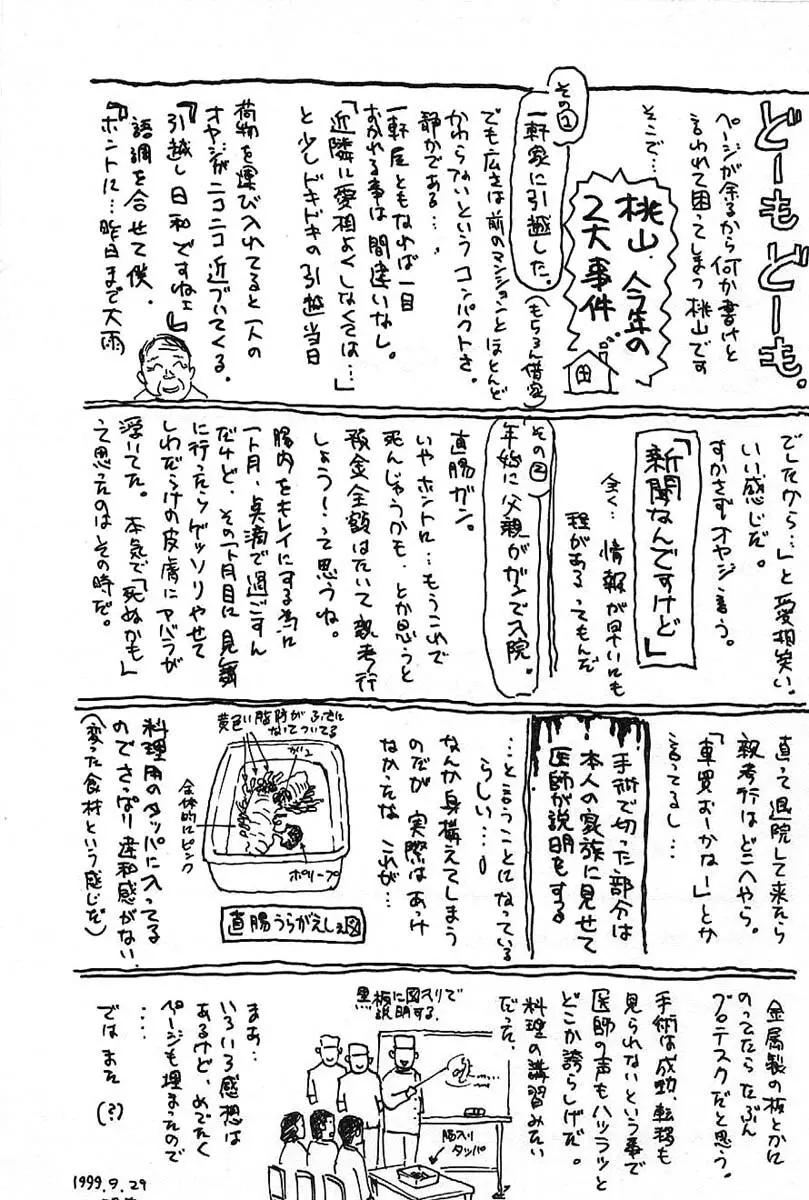 どーもどーも。
ページが余るから何か書けと
言われて困ってしまう桃山です
そこで…
桃山、今年の
2大事件
その1
一軒家に引越した。
(もちろん借家)
でも広さは前のマンションとほとんど
かわらないというコンパクトさ。
静かである…
一軒屋ともなれば一目
おかれる事は間違いなし。
「近隣に愛想よくしなくては…」
と少しドキドキの引越当日
荷物を運び入れてると一人の
オヤジがニコニコ近づいてくる。
『引越し日和ですねェ』
語調を合せて僕、
『ホントに…昨日まで大雨
でしたから…」と愛想笑い。
いい感じだ。
すかさずオヤジ言う。
「新聞なんですけど」
全く…情報が早いにも
程があるってもんだ
その2
年始に父親がガンで入院。
直腸ガン。
いやホントに…もうこれで
死んじゃうかも、とか思うと
預金全額はたいて親孝行
しょう！って思うね。
腸内をキレイにする為に
一ト月、点滴で過ごすん
だけど、その1ヶ月目に見舞
に行ったらゲッソリやせて
しわだらけの皮膚にアバラが
浮いてた。本気で「死ぬかも」
って思ったのはその時だ。
直って退院して来たら
親孝行はどこへやら。
「車買おーかなー」とか
言ってるし…
手術で切った部分は
本人の家族に見せて
医師が説明をする
…と言うことになっている
らしい…。
なんか身構えてしまう
のだが 実際はあっけ
なかったな これが…
黄色い脂肪がふさに
なってついてる
ガン
全体的にピンク
ポリープ
直腸うらがえしの図
料理用のタッパに入ってる
のでさっぱり違和感がない
(変った食材という感じだ)
金属製の板とかに
のってたらたぶん
グロテスクだと思う。
手術は成功、転移も
見られないという事で
医師の声もハツラツと
どこか誇らしげだ。
料理の講習みたい
だった。
黒板に図入りで
説明する。
腸入り
タッパ
まぁ…
いろいろ感想は
あるけど、めでたく
ページも埋まったので
…
ではまた
(?)
1999.9.29